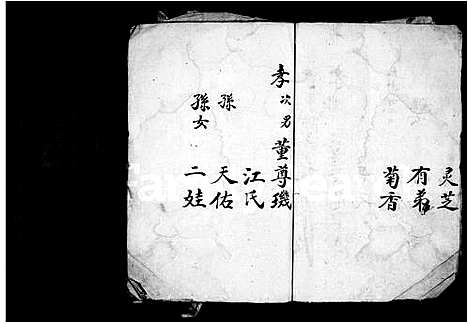 灵芝
有弟
菊香
孝次男 董尊璣
江氏
孫 天佑
孫女 二娃